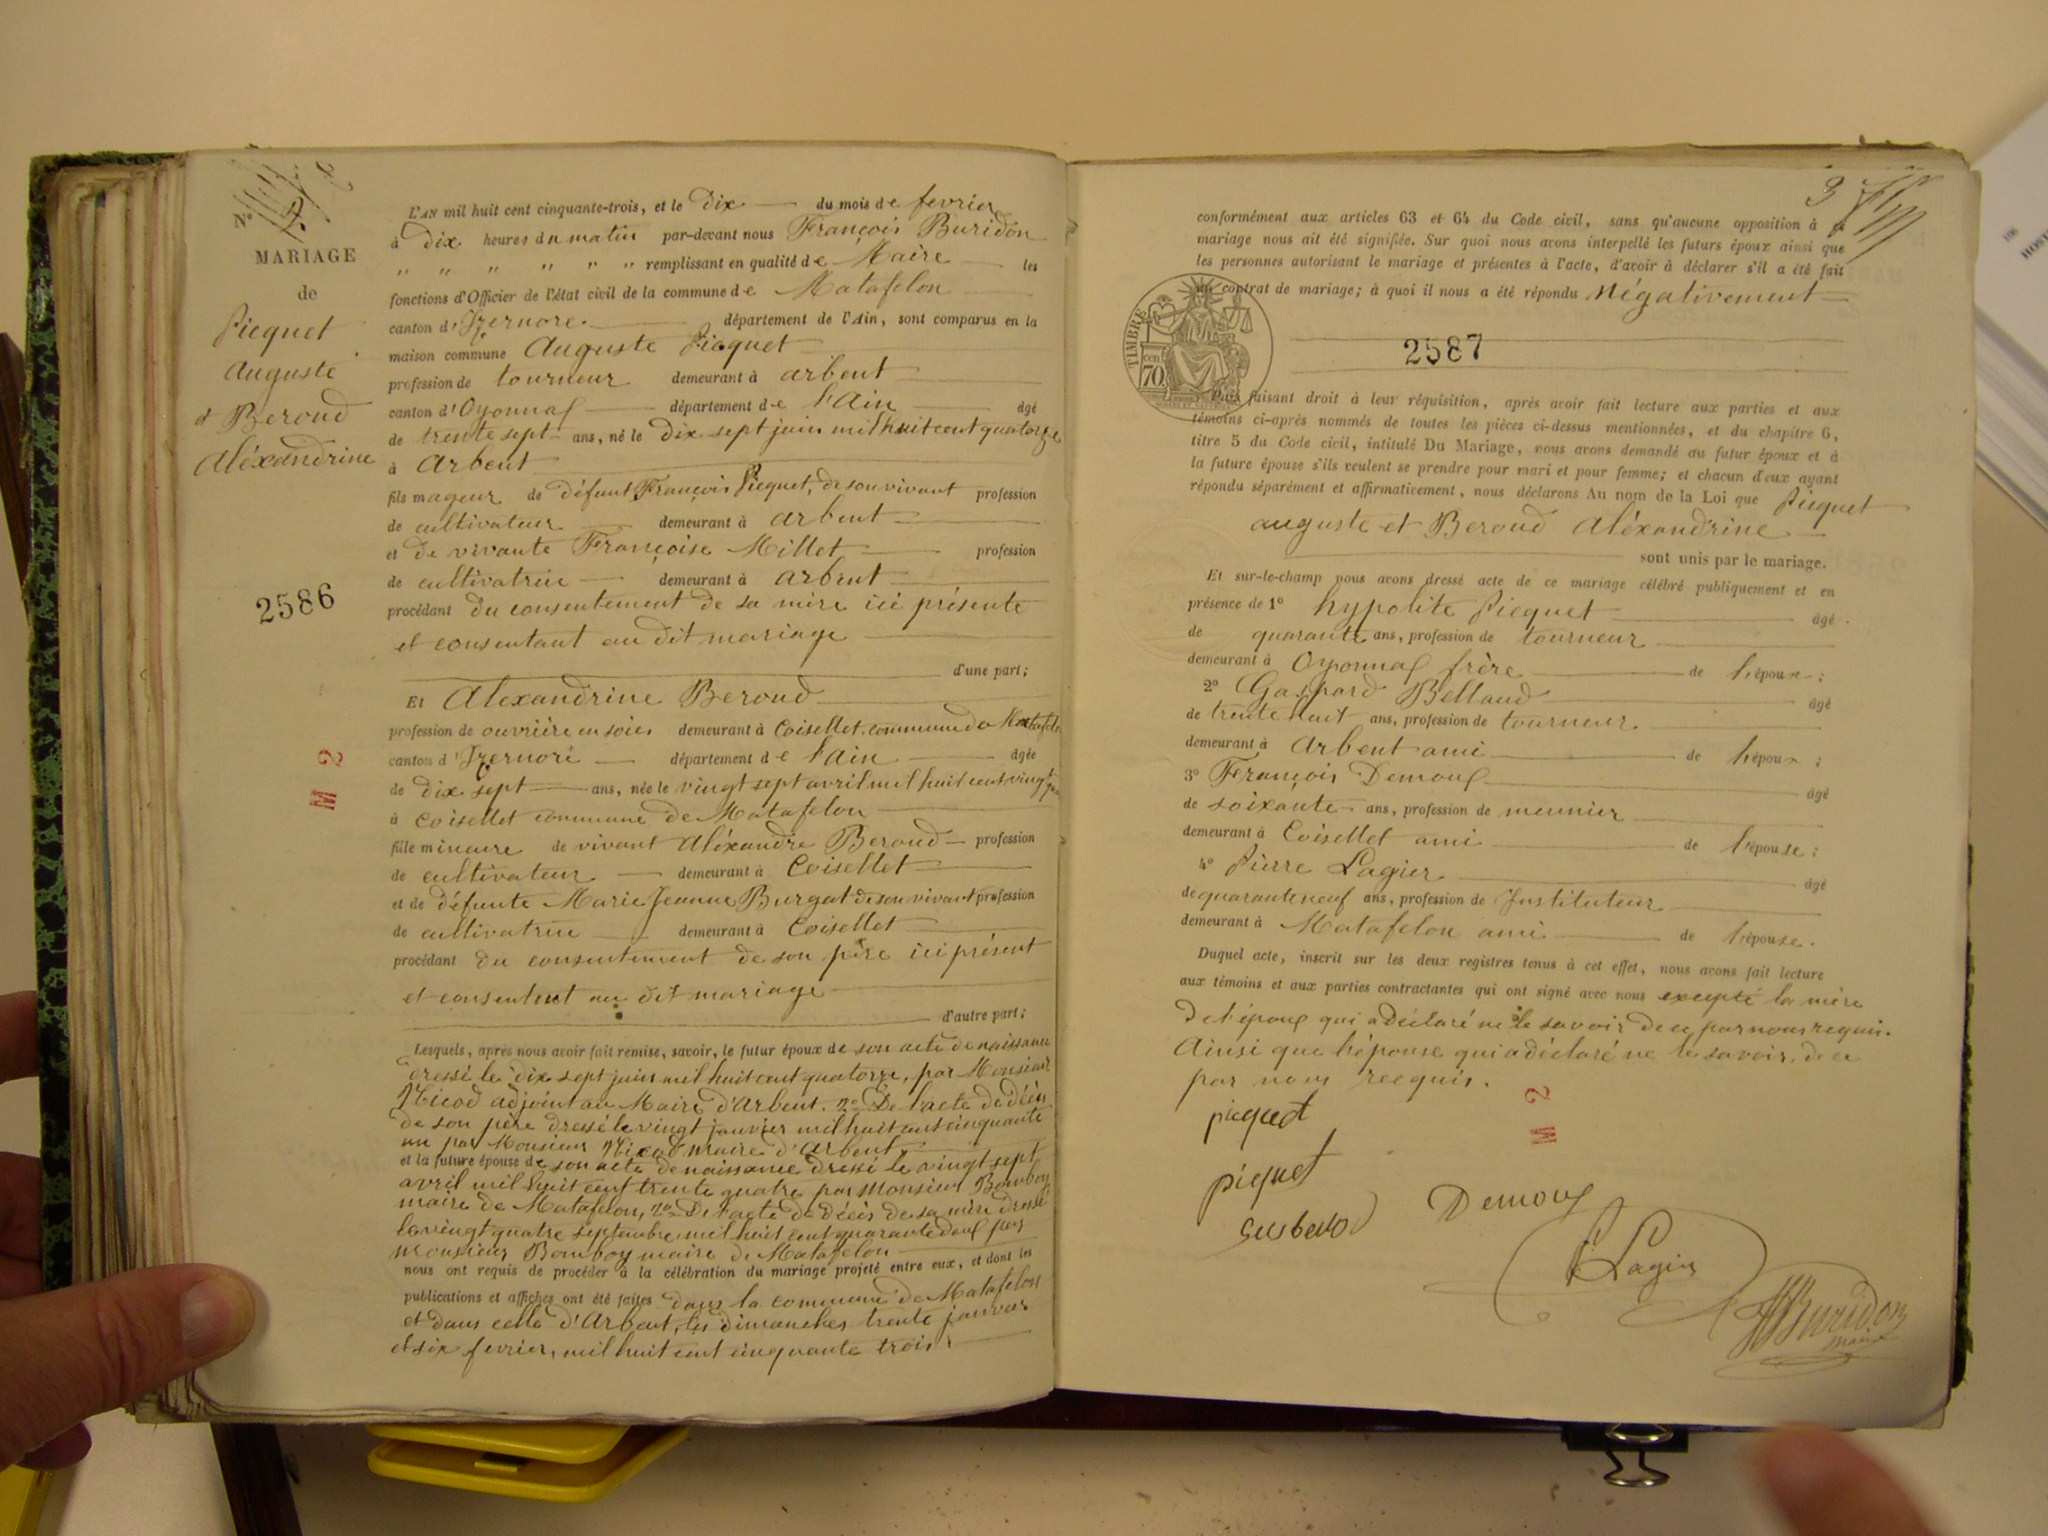 N° 2
MARIAGE
de
Picquet
Auguste
et Beroud
Aléxandrine
2586
M 2
L'AN mil huit cent cinquante-trois, et le dix du mois de fevrier
à dix heures du matin par-devant nous François Buridon
" " " " " " remplissant en qualité de Maire les
fonctions d'Officier de l'état civil de la commune de Matafelon
canton d'Izernore département de l'Ain, sont comparus en la
maison commune Auguste Picquet
profession de tourneur demeurant à arbent
canton d'Oyonnax département de l'Ain âgé
de trente sept ans, né le dix sept juin mil huit cent quatorze
à Arbent
fils mageur de défunt François Picquet, de son vivant profession
de cultivateur demeurant à arbent
et de vivante Françoise Millet profession
de cultivatrice demeurant à arbent
procédant du consentement de sa mère ici présente
et consentant au dit mariage
d'une part;
Et Alexandrine Beroud
profession de ouvrière en soies demeurant à Coisellet commune de Matafelon
canton d'Izernore département de l'Ain âgée
de dix sept ans, née le vingt sept avril mil huit cent vingt
à Coisellet commune de Matafelon
fille mineure de vivant Aléxandre Beroud profession
de cultivateur demeurant à Coisellet
et de défunte Marie Jeanne Burgat de son vivant profession
de cultivatrice demeurant à Coisellet
procédant du consentement de son père ici présent
et consentent au dit mariage
d'autre part;
Lesquels, après nous avoir fait remise, savoir, le futur époux de son acte de naissance
dressé le dix sept juin mil huit cent quatorze, par Monsieur
adjoint au Maire d'Arbent. 2° De l'acte de décès
de son père dressé le vingt janvier mil huit cent cinquante
un par Monsieur maire d'Arbent
et la future épouse de son acte de naissance dressé le vingt sept
avril mil huit cent trente quatre par Monsieur Bomboy
maire de Matafelon, 2° De l'acte de décès de sa mère dressé
le vingt quatre septembre mil huit cent quarante deux par
Monsieur Bomboy maire de Matafelon
nous ont requis de procéder à la célébration du mariage projeté entre eux, et dont les
publications et affiches ont été faites dans la commune de Matafelon
et dans celle d'Arbent, les dimanches trente janvier
et six fevrier, mil huit cent cinquante trois
3
conformément aux articles 63 et 64 du Code civil, sans qu'aucune opposition à
mariage nous ait été signifiée. Sur quoi nous avons interpellé les futurs époux ainsi que
les personnes autorisant le mariage et présentes à l'acte, d'avoir à déclarer s'il a été fait
un contrat de mariage; à quoi il nous a été répondu négativement
TIMBRE
cent
70
2587
Puis faisant droit à leur réquisition, après avoir fait lecture aux parties et aux
témoins ci-après nommés de toutes les pièces ci-dessus mentionnées, et du chapitre 6,
titre 5 du Code civil, intitulé Du Mariage, nous avons demandé au futur époux et à
la future épouse s'ils veulent se prendre pour mari et pour femme; et chacun d'eux ayant
répondu séparément et affirmativement, nous déclarons Au nom de la Loi que Picquet
auguste et Beroud Aléxandrine
sont unis par le mariage.
Et sur-le-champ nous avons dressé acte de ce mariage célébré publiquement et en
présence de 1° hypolite Picquet âgé
de quarante ans, profession de tourneur
demeurant à Oyonnax frère de l'époux;
2° Gaspard Belland âgé
de trente huit ans, profession de tourneur
demeurant à Arbent ami de l'époux;
3° François Demoux âgé
de soixante ans, profession de meunier
demeurant à Coisellet ami de l'épouse;
4° Pierre Lagier âgé
de quarante neuf ans, profession de Instituteur
demeurant à Matafelon ami de l'épouse.
Duquel acte, inscrit sur les deux registres tenus à cet effet, nous avons fait lecture
aux témoins et aux parties contractantes qui ont signé avec nous excepté la mère
de l'époux qui a déclaré ne le savoir de ce par nous requis.
Ainsi que l'épouse qui a déclaré ne le savoir, de ce
par nous recquis.
M 2
picquet
picquet
Demoux
Lagier
Buridon
maire